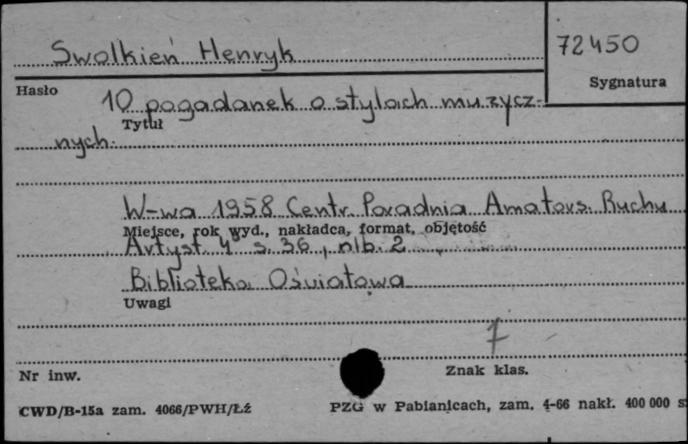 Swolkień Henryk
72450
Hasło
Sygnatura
10 pogadanek o stylach muzycz-
Tytuł
nych.
W-wa 1958 Centr. Poradnia Amators. Ruchu
Miejsce, rok wyd., nakładca, format, objętość
Artyst. 4° s. 36, nlb. 2
Biblioteka Oświatowa
Uwagi
7
Nr inw.
Znak klas.
CWD/B-15a zam. 4066/PWH/Łź
PZG w Pabianicach, zam. 4-66 nakł. 400 000 s